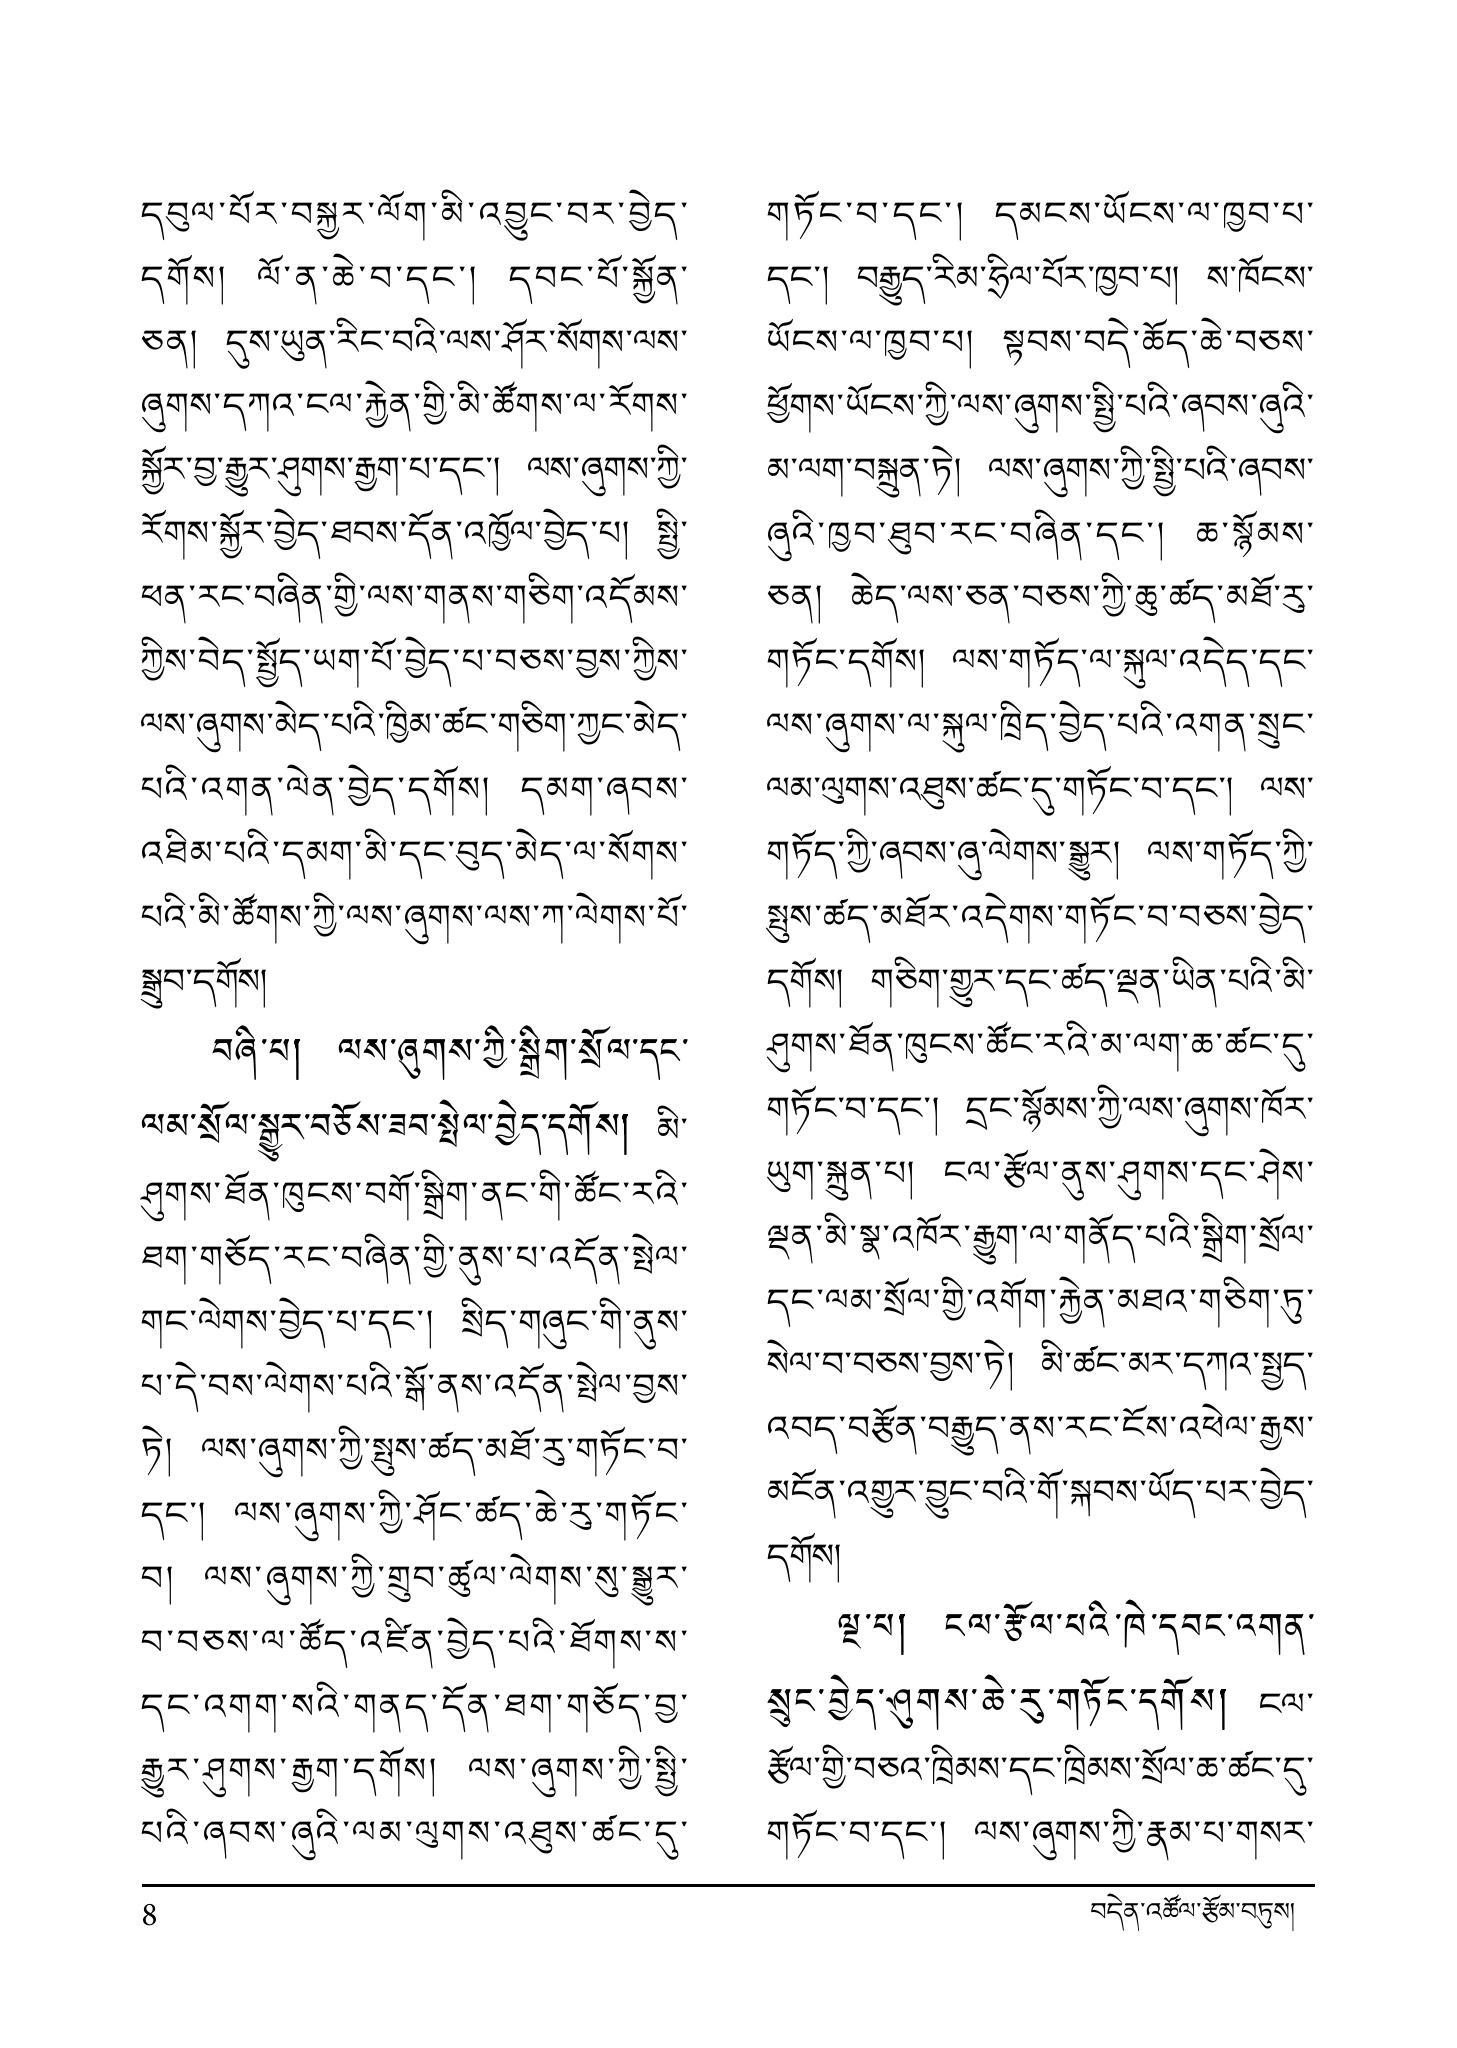 དབུལ་པོར་བསྐྱར་ལོག་མི་འབྱུང་བར་བྱེད་
དགོས། ལོ་ན་ཆེ་བ་དང་། དབང་པོ་སྐྱོན་
ཅན། དུས་ཡུན་རིང་བའི་ལས་ཤོར་སོགས་ལས་
ཞུགས་དཀའ་ངལ་རྐྱེན་གྱི་མི་ཚོགས་ལ་རོགས་
སྐྱོར་བྱ་རྒྱུར་ཤུགས་རྒྱག་པ་དང་། ལས་ཞུགས་ཀྱི་
རོགས་སྐྱོར་བྱེད་ཐབས་དོན་འཁྱོལ་བྱེད་པ། སྤྱི་
ཕན་རང་བཞིན་གྱི་ལས་གནས་གཅིག་འདོམས་
ཀྱིས་བེད་སྤྱོད་ཡག་པོ་བྱེད་པ་བཅས་བྱས་ཀྱིས་
ལས་ཞུགས་མེད་པའི་ཁྱིམ་ཚང་གཅིག་ཀྱང་མེད་
པའི་འགན་ལེན་བྱེད་དགོས། དམག་ཞབས་
འཐིམ་པའི་དམག་མི་དང་བུད་མེད་ལ་སོགས་
པའི་མི་ཚོགས་ཀྱི་ལས་ཞུགས་ལས་ཀ་ལེགས་པོ་
སྒྲུབ་དགོས།
བཞི་པ། ལས་ཞུགས་ཀྱི་སྒྲིག་སྲོལ་དང་
ལམ་སྲོལ་སྒྱུར་བཅོས་ཟབ་སྤེལ་བྱེད་དགོས། མི་
ཤུགས་ཐོན་ཁུངས་བགོ་སྒྲིག་ནང་གི་ཚོང་རའི་
ཐག་གཅོད་རང་བཞིན་གྱི་ནུས་པ་འདོན་སྤེལ་
གང་ལེགས་བྱེད་པ་དང་། སྲིད་གཞུང་གི་ནུས་
པ་དེ་བས་ལེགས་པའི་སྒོ་ནས་འདོན་སྤེལ་བྱས་
ཏེ། ལས་ཞུགས་ཀྱི་སྤུས་ཚད་མཐོ་རུ་གཏོང་བ་
དང་། ལས་ཞུགས་ཀྱི་ཤོང་ཚད་ཆེ་རུ་གཏོང་
བ། ལས་ཞུགས་ཀྱི་གྲུབ་ཚུལ་ལེགས་སུ་སྒྱུར་
བ་བཅས་ལ་ཚོད་འཛིན་བྱེད་པའི་ཐོགས་ས་
དང་འགག་སའི་གནད་དོན་ཐག་གཅོད་བྱ་
རྒྱུར་ཤུགས་རྒྱག་དགོས། ལས་ཞུགས་ཀྱི་སྤྱི་
པའི་ཞབས་ཞུའི་ལམ་ལུགས་འཐུས་ཚང་དུ་
གཏོང་བ་དང་། དམངས་ཡོངས་ལ་ཁྱབ་པ་
དང་། བརྒྱུད་རིམ་ཧྲིལ་པོར་ཁྱབ་པ། ས་ཁོངས་
ཡོངས་ལ་ཁྱབ་པ། སྟབས་བདེ་ཚོད་ཆེ་བཅས་
ཕྱོགས་ཡོངས་ཀྱི་ལས་ཞུགས་སྤྱི་པའི་ཞབས་ཞུའི་
མ་ལག་བསྐྲུན་ཏེ། ལས་ཞུགས་ཀྱི་སྤྱི་པའི་ཞབས་
ཞུའི་ཁྱབ་ཐུབ་རང་བཞིན་དང་། ཆ་སྙོམས་
ཅན། ཆེད་ལས་ཅན་བཅས་ཀྱི་ཆུ་ཚད་མཐོ་རུ་
གཏོང་དགོས། ལས་གཏོད་ལ་སྐུལ་འདེད་དང་
ལས་ཞུགས་ལ་སྐུལ་ཁྲིད་བྱེད་པའི་འགན་སྲུང་
ལམ་ལུགས་འཐུས་ཚང་དུ་གཏོང་བ་དང་། ལས་
གཏོད་ཀྱི་ཞབས་ཞུ་ལེགས་སྒྱུར། ལས་གཏོད་ཀྱི་
སྤུས་ཚད་མཐོར་འདེགས་གཏོང་བ་བཅས་བྱེད་
དགོས། གཅིག་གྱུར་དང་ཚད་ལྡན་ཡིན་པའི་མི་
ཤུགས་ཐོན་ཁུངས་ཚོང་རའི་མ་ལག་ཆ་ཚང་དུ་
གཏོང་བ་དང་། དྲང་སྙོམས་ཀྱི་ལས་ཞུགས་ཁོར་
ཡུག་སྐྲུན་པ། ངལ་རྩོལ་ནུས་ཤུགས་དང་ཤེས་
ལྡན་མི་སྣ་འཁོར་རྒྱུག་ལ་གནོད་པའི་སྒྲིག་སྲོལ་
དང་ལམ་སྲོལ་གྱི་འགོག་རྐྱེན་མཐའ་གཅིག་ཏུ་
སེལ་བ་བཅས་བྱས་ཏེ། མི་ཚང་མར་དཀའ་སྤྱད་
འབད་བརྩོན་བརྒྱུད་ནས་རང་ངོས་འཕེལ་རྒྱས་
མངོན་འགྱུར་བྱུང་བའི་གོ་སྐབས་ཡོད་པར་བྱེད་
དགོས།
ལྔ་པ། ངལ་རྩོལ་པའི་ཁེ་དབང་འགན་
སྲུང་བྱེད་ཤུགས་ཆེ་རུ་གཏོང་དགོས། ངལ་
རྩོལ་གྱི་བཅའ་ཁྲིམས་དང་ཁྲིམས་སྲོལ་ཆ་ཚང་དུ་
གཏོང་བ་དང་། ལས་ཞུགས་ཀྱི་རྣམ་པ་གསར་
8 བདེན་འཚོལ་རྩོམ་བཏུས།